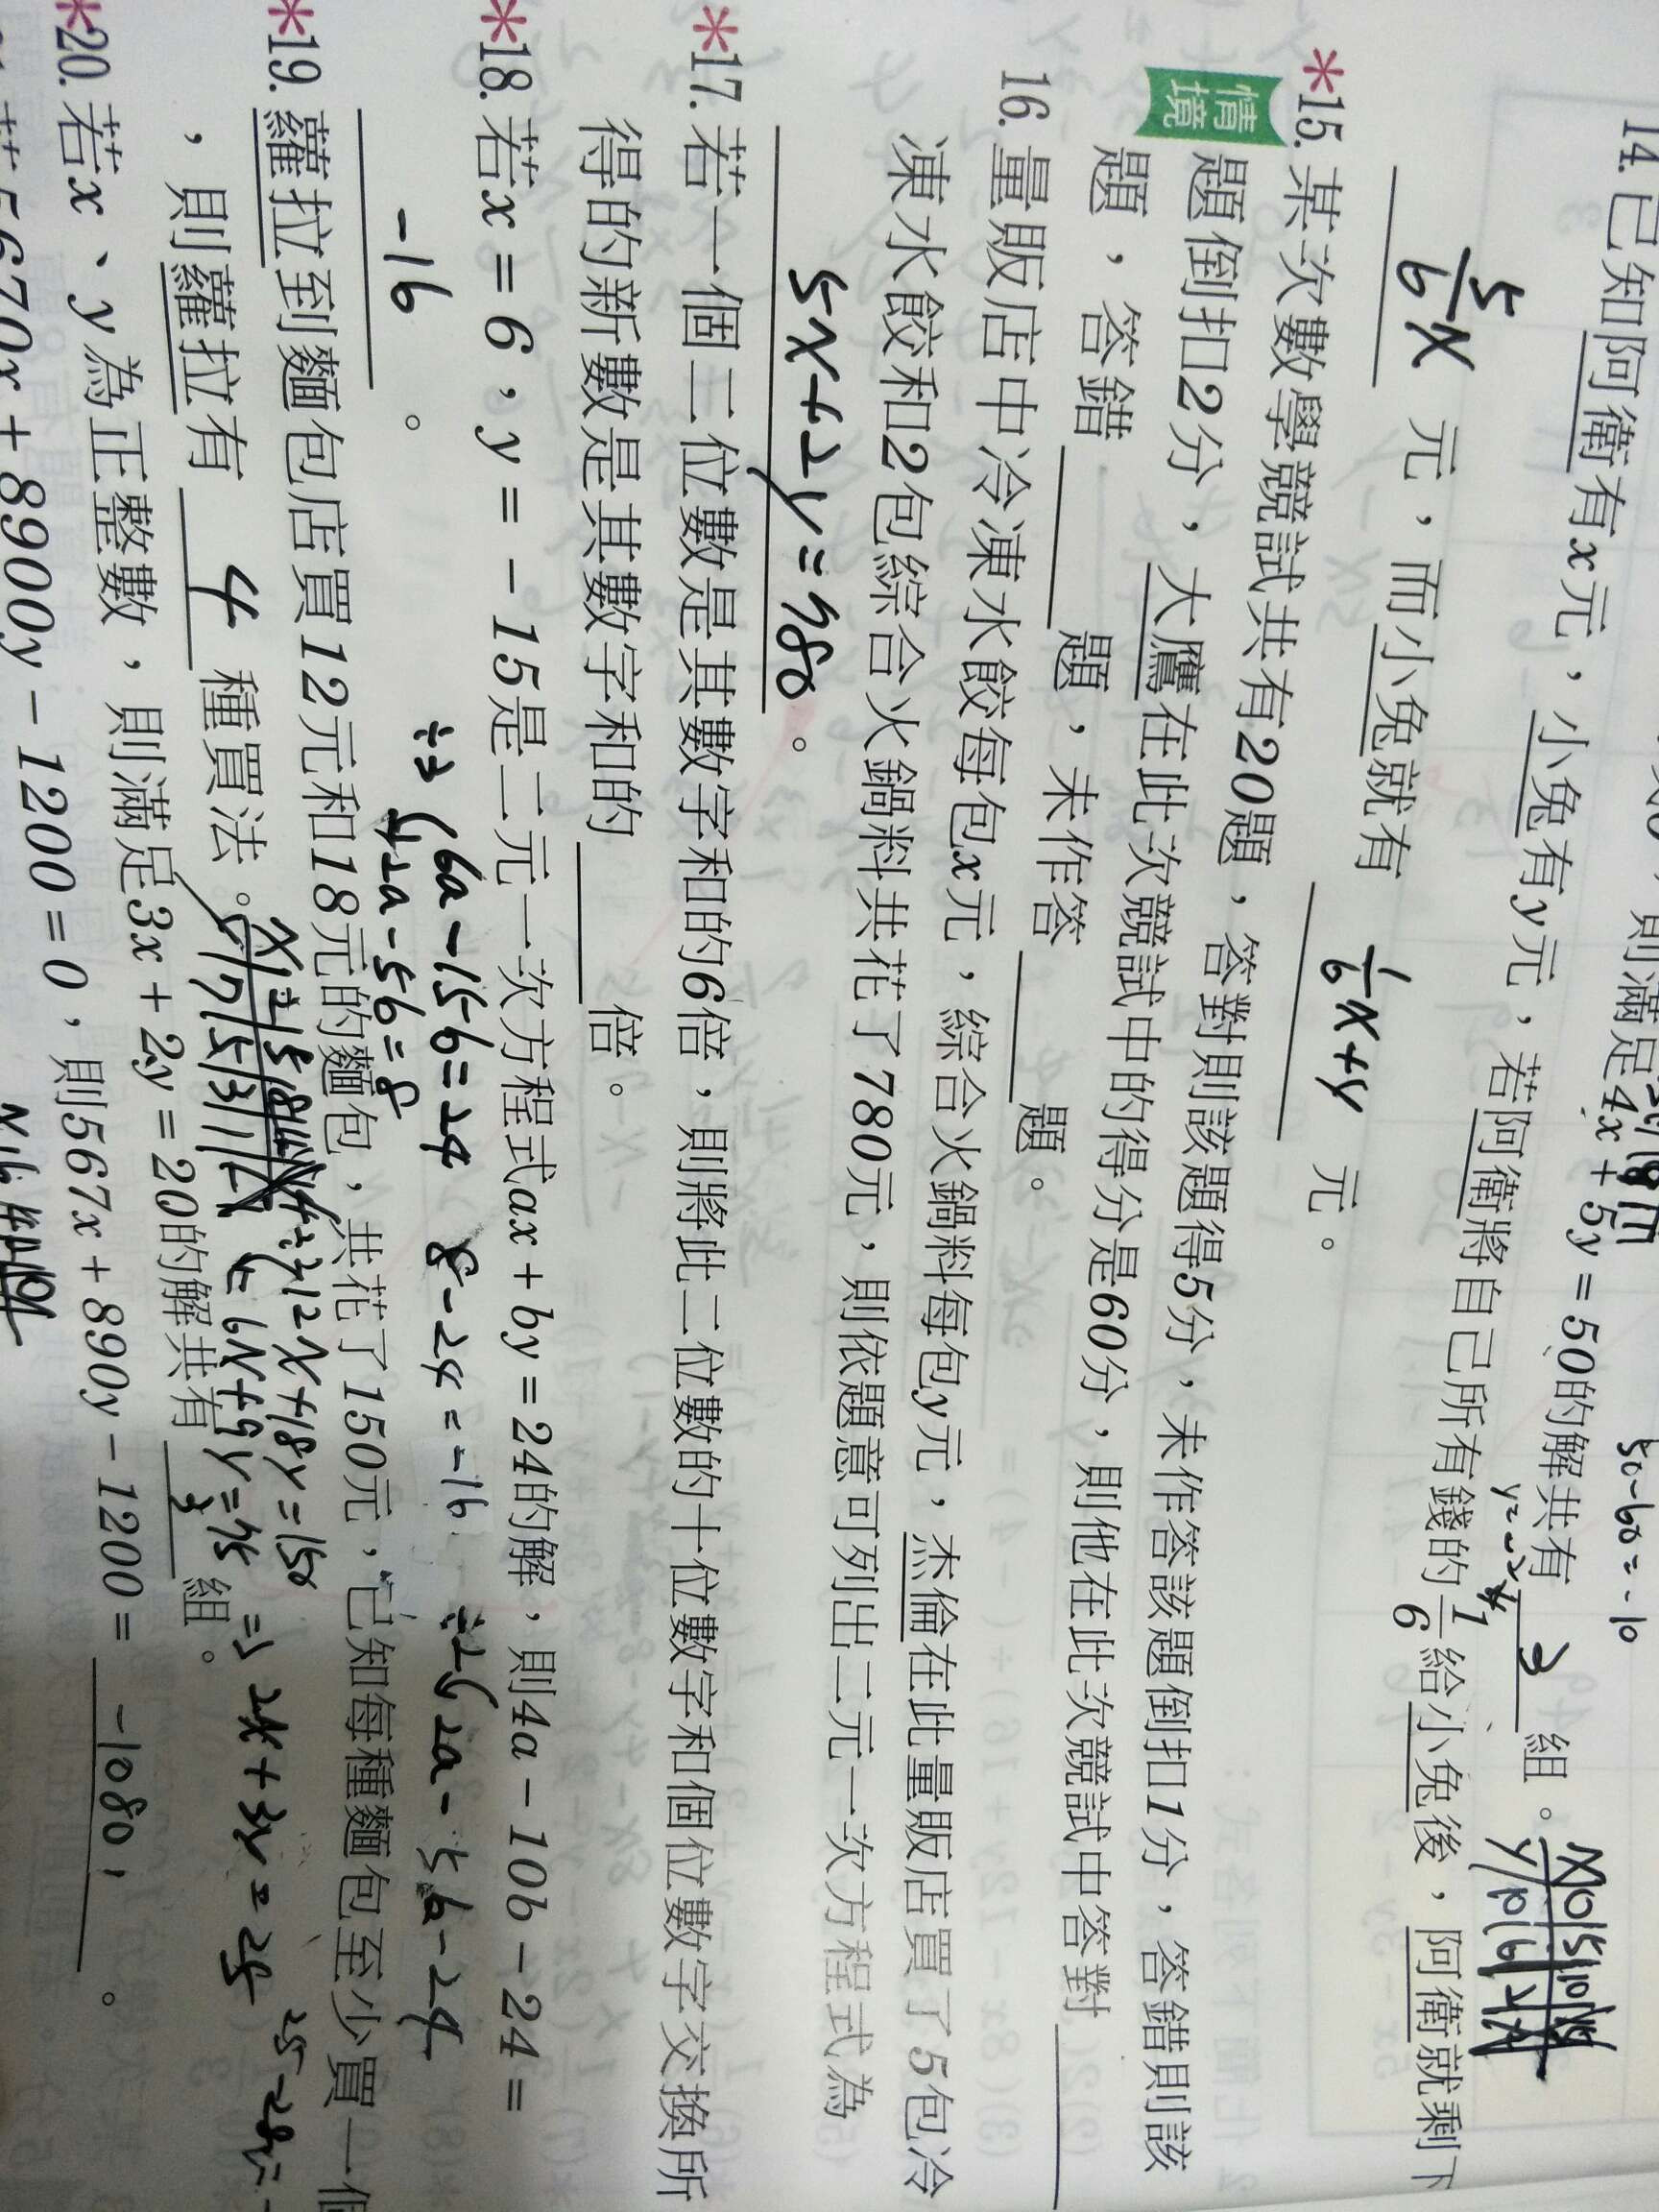 則滿足4x + 5y = 50的解共有 3 組。
50-60=-10
14. 已知阿衛有x元,小兔有y元,若阿衛將自己所有錢的1/6給小兔後,阿衛就剩下
5/6x 元,而小兔就有 1/6x+y 元。
*15. 某次數學競試共有20題,答對則該題得5分,未作答該題倒扣1分,答錯則該
情境 題倒扣2分,大鷹在此次競試中的得分是60分,則他在此次競試中答對
題,答錯 題,未作答 題。
16. 量販店中冷凍水餃每包x元,綜合火鍋料每包y元,杰倫在此量販店買了5包冷
凍水餃和2包綜合火鍋料共花了780元,則依題意可列出二元一次方程式為
5x+2y=780 。
*17. 若一個二位數是其數字和的6倍,則將此二位數的十位數字和個位數字交換所
得的新數是其數字和的 倍。
*18. 若x = 6,y = -15是二元一次方程式ax + by = 24的解,則4a - 10b - 24 =
-16 。
÷3 6a-15b=24
2a-5b=8
8-24=-16
÷2 2a-5b-24
*19. 蘿拉到麵包店買12元和18元的麵包,共花了150元,已知每種麵包至少買一個
,則蘿拉有 4 種買法。
12x+18y=150
=6x+9y=75
=2x+3y=25
*20. 若x、y為正整數,則滿足3x + 2y = 20的解共有 3 組。
若5670x + 8900y - 1200 = 0,則567x + 890y - 1200 = -1080 。